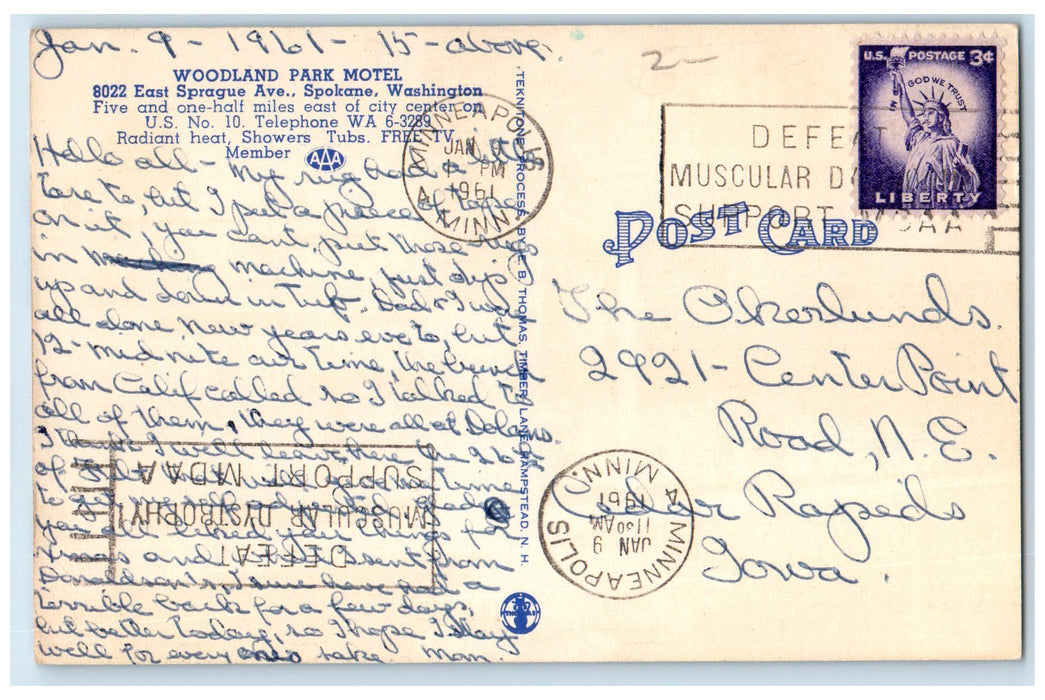 Jan. 9 - 1961 - 15 - above.
WOODLAND PARK MOTEL
8022 East Sprague Ave., Spokane, Washington
Five and one-half miles east of city center on
U.S. No. 10. Telephone WA 6-3289
Radiant heat, Showers Tubs. FREE TV
Member AAA
Hello all - My rug had a little
tare to, but I put a piece of tape
on it, you cant put those rugs
in machine, just dip
up and down in tub. Dad & I were
all alone New years eve to, but
12 - mid nite our time, the bunch
from Calif called so I talked to
all of them, they were all at Delams.
I think I will leave here the
of time
to get
you all liked your things for
Xmas and sent from
Donaldson's, I sure have got a
terrible back for a few days,
but better today, so I hope I stay
well for every ones sake. Mom.
TEKNITONE PROCESS, BY E. B. THOMAS, TIMBER LANE, HAMPSTEAD, N. H.
THOMAS
2-
U.S. POSTAGE 3¢
IN GOD WE TRUST
LIBERTY
MINNEAPOLIS
JAN
PM
1961
MINN.
DEFEAT
MUSCULAR D
SUPPORT MDAA
POST CARD
The Okerlunds.
2921 - Center Point
Road, N.E.
Cedar Rapids
Iowa.
MINNEAPOLIS
JAN 9
11 30 AM
1961
MINN.
DEFEAT
MUSCULAR DYSTROPHY!
SUPPORT MDAA